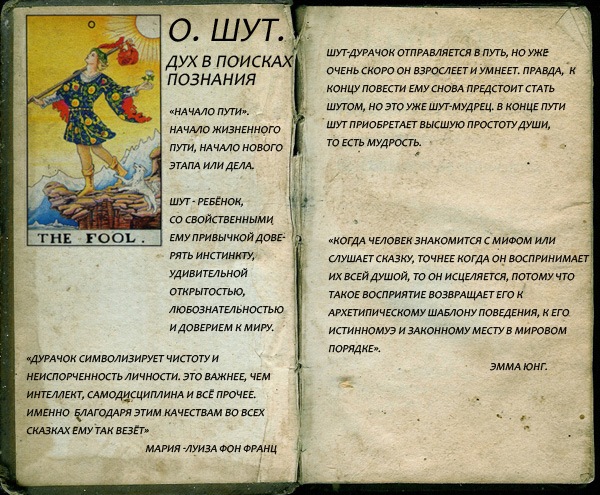 0
THE FOOL.
О. ШУТ.
ДУХ В ПОИСКАХ
ПОЗНАНИЯ
«НАЧАЛО ПУТИ».
НАЧАЛО ЖИЗНЕННОГО
ПУТИ, НАЧАЛО НОВОГО
ЭТАПА ИЛИ ДЕЛА.
ШУТ - РЕБЁНОК,
СО СВОЙСТВЕННЫМИ
ЕМУ ПРИВЫЧКОЙ ДОВЕ-
РЯТЬ ИНСТИНКТУ,
УДИВИТЕЛЬНОЙ
ОТКРЫТОСТЬЮ,
ЛЮБОЗНАТЕЛЬНОСТЬЮ
И ДОВЕРИЕМ К МИРУ.
«ДУРАЧОК СИМВОЛИЗИРУЕТ ЧИСТОТУ И
НЕИСПОРЧЕННОСТЬ ЛИЧНОСТИ. ЭТО ВАЖНЕЕ, ЧЕМ
ИНТЕЛЛЕКТ, САМОДИСЦИПЛИНА И ВСЁ ПРОЧЕЕ.
ИМЕННО БЛАГОДАРЯ ЭТИМ КАЧЕСТВАМ ВО ВСЕХ
СКАЗКАХ ЕМУ ТАК ВЕЗЁТ»
МАРИЯ -ЛУИЗА ФОН ФРАНЦ
ШУТ-ДУРАЧОК ОТПРАВЛЯЕТСЯ В ПУТЬ, НО УЖЕ
ОЧЕНЬ СКОРО ОН ВЗРОСЛЕЕТ И УМНЕЕТ. ПРАВДА, К
КОНЦУ ПОВЕСТИ ЕМУ СНОВА ПРЕДСТОИТ СТАТЬ
ШУТОМ, НО ЭТО УЖЕ ШУТ-МУДРЕЦ. В КОНЦЕ ПУТИ
ШУТ ПРИОБРЕТАЕТ ВЫСШУЮ ПРОСТОТУ ДУШИ,
ТО ЕСТЬ МУДРОСТЬ.
«КОГДА ЧЕЛОВЕК ЗНАКОМИТСЯ С МИФОМ ИЛИ
СЛУШАЕТ СКАЗКУ, ТОЧНЕЕ КОГДА ОН ВОСПРИНИМАЕТ
ИХ ВСЕЙ ДУШОЙ, ТО ОН ИСЦЕЛЯЕТСЯ, ПОТОМУ ЧТО
ТАКОЕ ВОСПРИЯТИЕ ВОЗВРАЩАЕТ ЕГО К
АРХЕТИПИЧЕСКОМУ ШАБЛОНУ ПОВЕДЕНИЯ, К ЕГО
ИСТИННОМУЭ И ЗАКОННОМУ МЕСТУ В МИРОВОМ
ПОРЯДКЕ».
ЭММА ЮНГ.